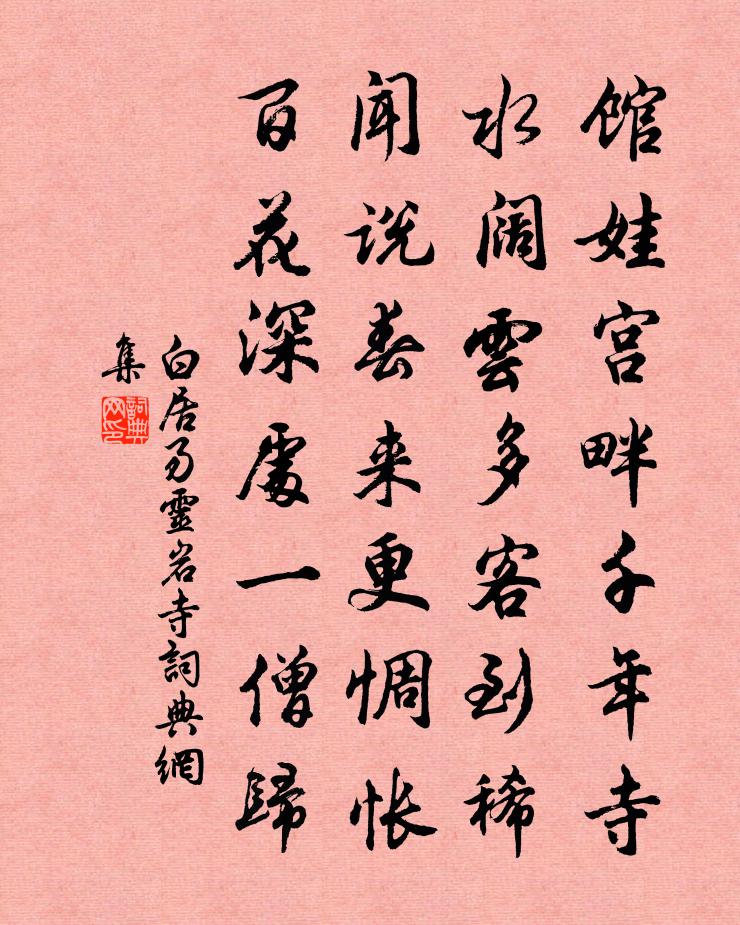 馆娃宫畔千年寺
水阔雲多客到稀
闻说春来更惆怅
百花深處一僧歸
白居易靈岩寺詞典網
集
詞典
网印